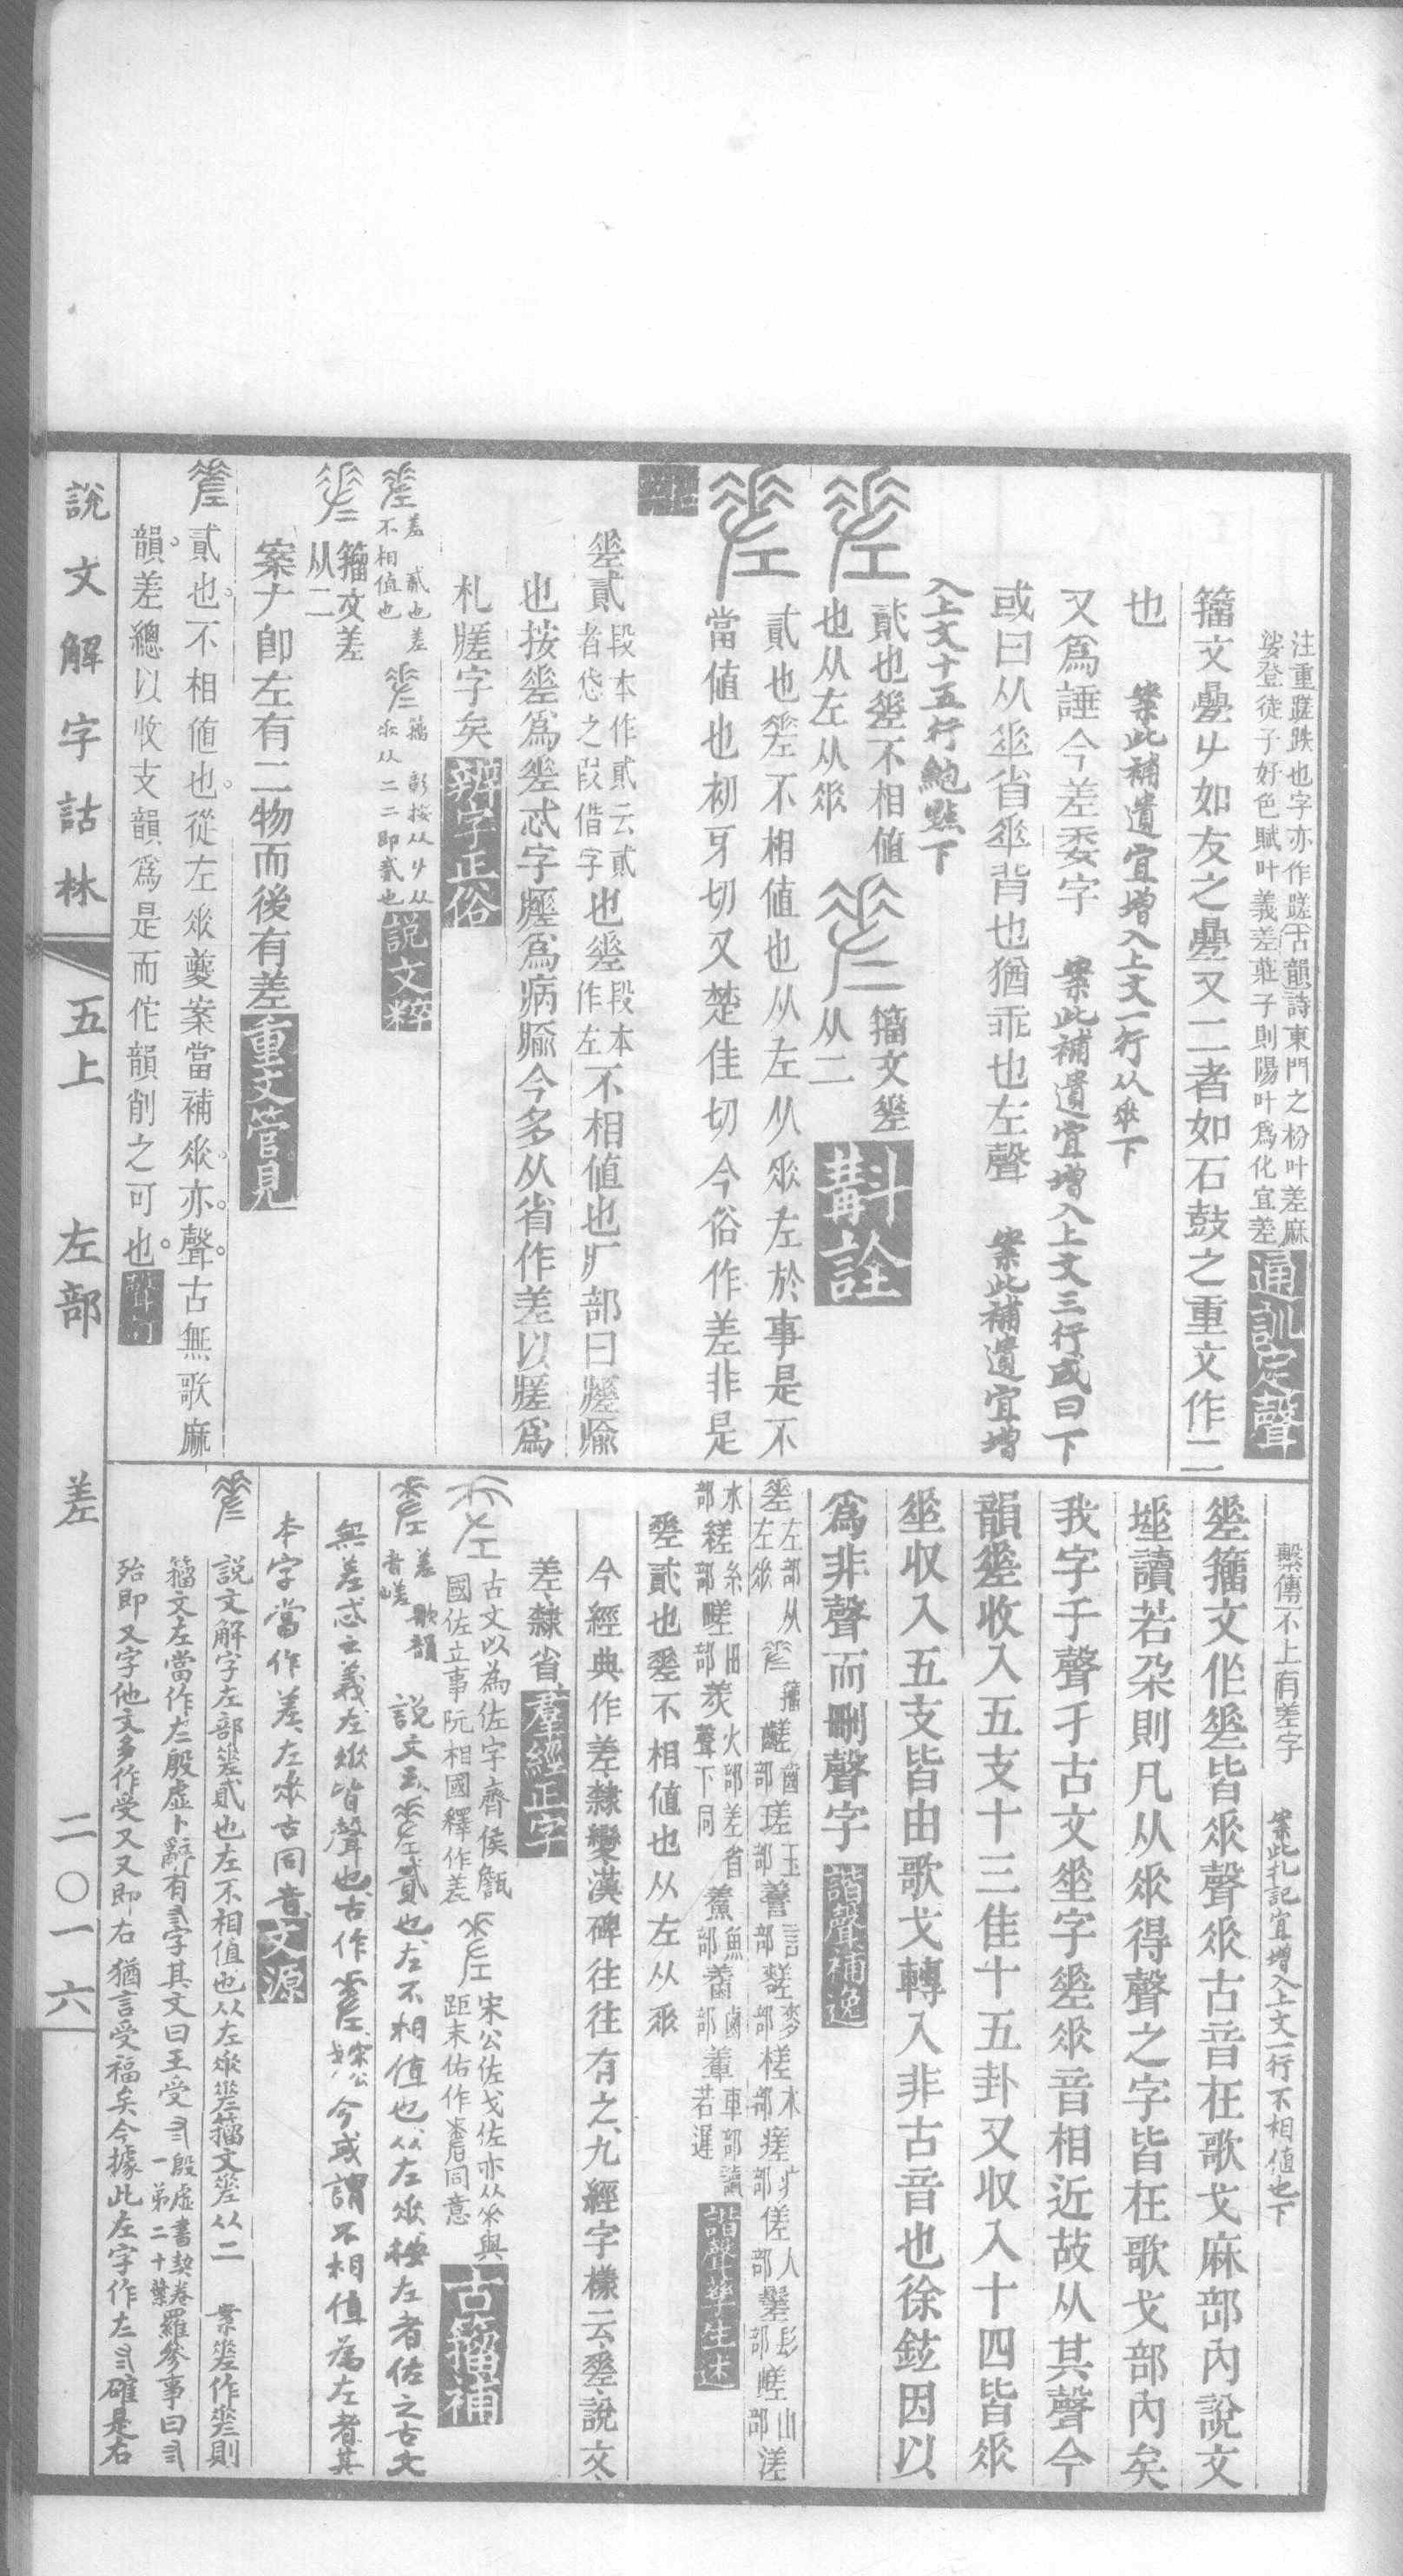 注重蹉跌也字亦作蹉古韻詩東門之枌叶差麻
娑登徒子好色賦叶義差莊子則陽叶爲化宜差
通訓定聲
籒文㬪屮如友之㬪又二者如石鼓之重文作二
也　案此補遺宜增入上文一行从𠂹下
又爲諈今差委字　案此補遺宜增入上文三行或曰下
或曰从𡍮省𠦒背也猶乖也左聲　案此補遺宜增
入上文十五行絶點下
貳也𢀩不相值
也从左从𠂹
籒文𢀩
从二
斠詮
貳也𢀩不相值也从左从𠂹左於事是不
當値也初牙切又楚佳切今俗作差非是
𢀩貳段本作貳云貳
者㤅之叚借字也𢀩段本
作左不相値也疒部曰㾨瘉
也按𢀩爲𢀩忒字㾨爲病瘉今多从省作差以瘥爲
札瘥字矣
辨字正俗
差　貳也差
不相值也
籒　彰按从屮从
𠂹从二二即貳也
說文粹
籒文差
从二
案𠂇卽左有二物而後有差
重文管見
貳也不相値也從左𠂹夔案當補𠂹亦聲古無歌麻
韻差總以收支韻爲是而佗韻削之可也
說文解字詁林
五上　左部　差　二〇一六
繫傳不上有差字　案此札記宜增入上文一行不相值也下
𢀩籒文𠂹𢀩皆𠂹聲𠂹古音在歌戈麻部內說文
𡍮讀若朶則凡从𠂹得聲之字皆在歌戈部內矣
我字手聲手古文𡍮字𢀩𠂹音相近故从其聲今
韻𢀩收入五支十三佳十五卦又收入十四皆𠂹
𡍮收入五支皆由歌戈轉入非古音也徐鉉因以
爲非聲而刪聲字
諧聲補逸
𢀩左部从
左𠂹
籒
䶪齒部
瑳玉部
謩言部
䴾麥部
槎木部
瘥疒部
傞人部
鬊髟部
嵯山部
溠
水部
縒糸部
䁟田部
羨火部差省
聲下同
鮺魚部
鹺鹵部
䡨車部讀
若遲
諧聲孳生述
𢀩貳也𢀩不相值也从左从𠂹
今經典作差隸變漢碑往往有之九經字樣云𢀩說文
差隸省
羣經正字
古文以為佐字齊侯甔
國佐立事阮相國釋作差
宋公佐戈佐亦从𠂹與
距末佑作𢀩同意
古籒補
差歌韻
音嵯
說文云𢀩貳也左不相值也从左𠂹按左者佐之古文
無差忒之義左𠂹皆聲也古作𢀩宋公戈今或謂不相值為左者其
本字當作差左𠂹古同音
文源
說文解字左部𢀩貳也左不相值也从左𠂹𢀩籒文𢀩从二　案𢀩作𢀩則
籒文左當作𠂇二殷虛卜辭有字其文曰王受殷虛書契卷
一弟二十葉羅參事曰
殆即又字他文多作受又又即右　猶言受福矣今據此左字作確是右